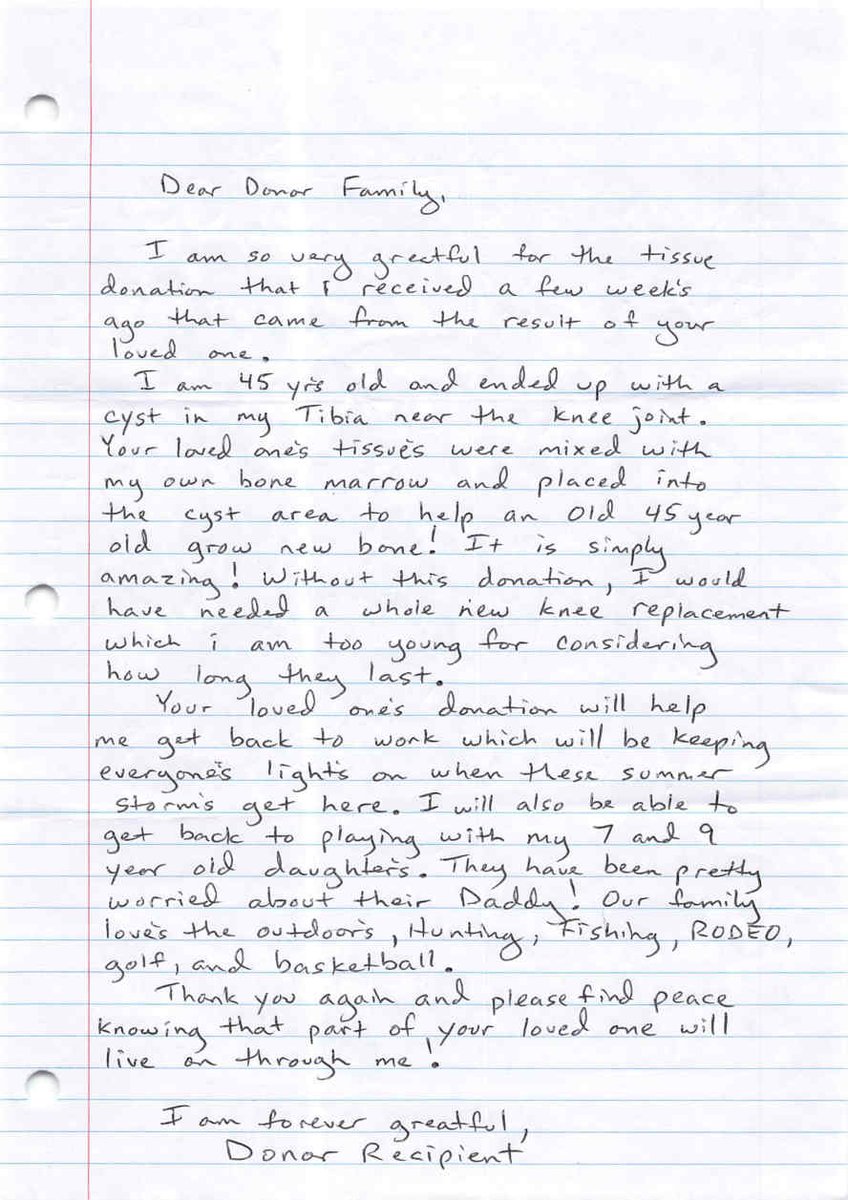 Dear Donor Family,
I am so very greatful for the tissue
donation that I received a few week's
ago that came from the result of your
loved one.
I am 45 yrs old and ended up with a
cyst in my Tibia near the knee joint.
Your loved one's tissue's were mixed with
my own bone marrow and placed into
the cyst area to help an old 45 year
old grow new bone! It is simply
amazing! Without this donation, I would
have needed a whole new knee replacement
which i am too young for considering
how long they last.
Your loved one's donation will help
me get back to work which will be keeping
everyone's light's on when these summer
storm's get here. I will also be able to
get back to playing with my 7 and 9
year old daughter's. They have been pretty
worried about their Daddy! Our family
love's the outdoor's, Hunting, Fishing, RODEO,
golf, and basketball.
Thank you again and please find peace
knowing that part of your loved one will
live on through me!
I am forever greatful,
Donor Recipient